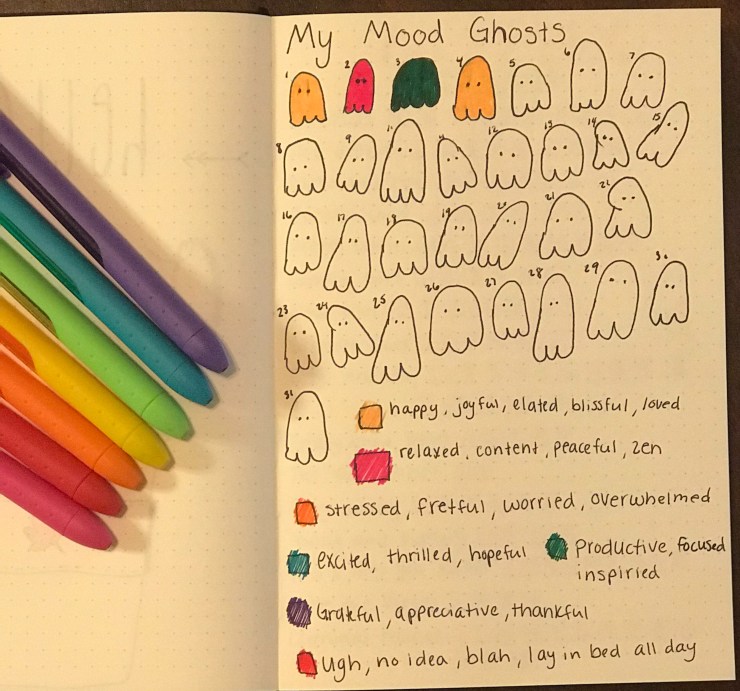 My Mood Ghosts
1 2 3 4 5 6 7
8 9 10 11 12 13 14 15
16 17 18 19 20 21 22
23 24 25 26 27 28 29 30
31
happy, joyful, elated, blissful, loved
relaxed, content, peaceful, zen
stressed, fretful, worried, overwhelmed
excited, thrilled, hopeful
Productive, focused
inspiried
Grateful, appreciative, thankful
ugh, no idea, blah, lay in bed all day